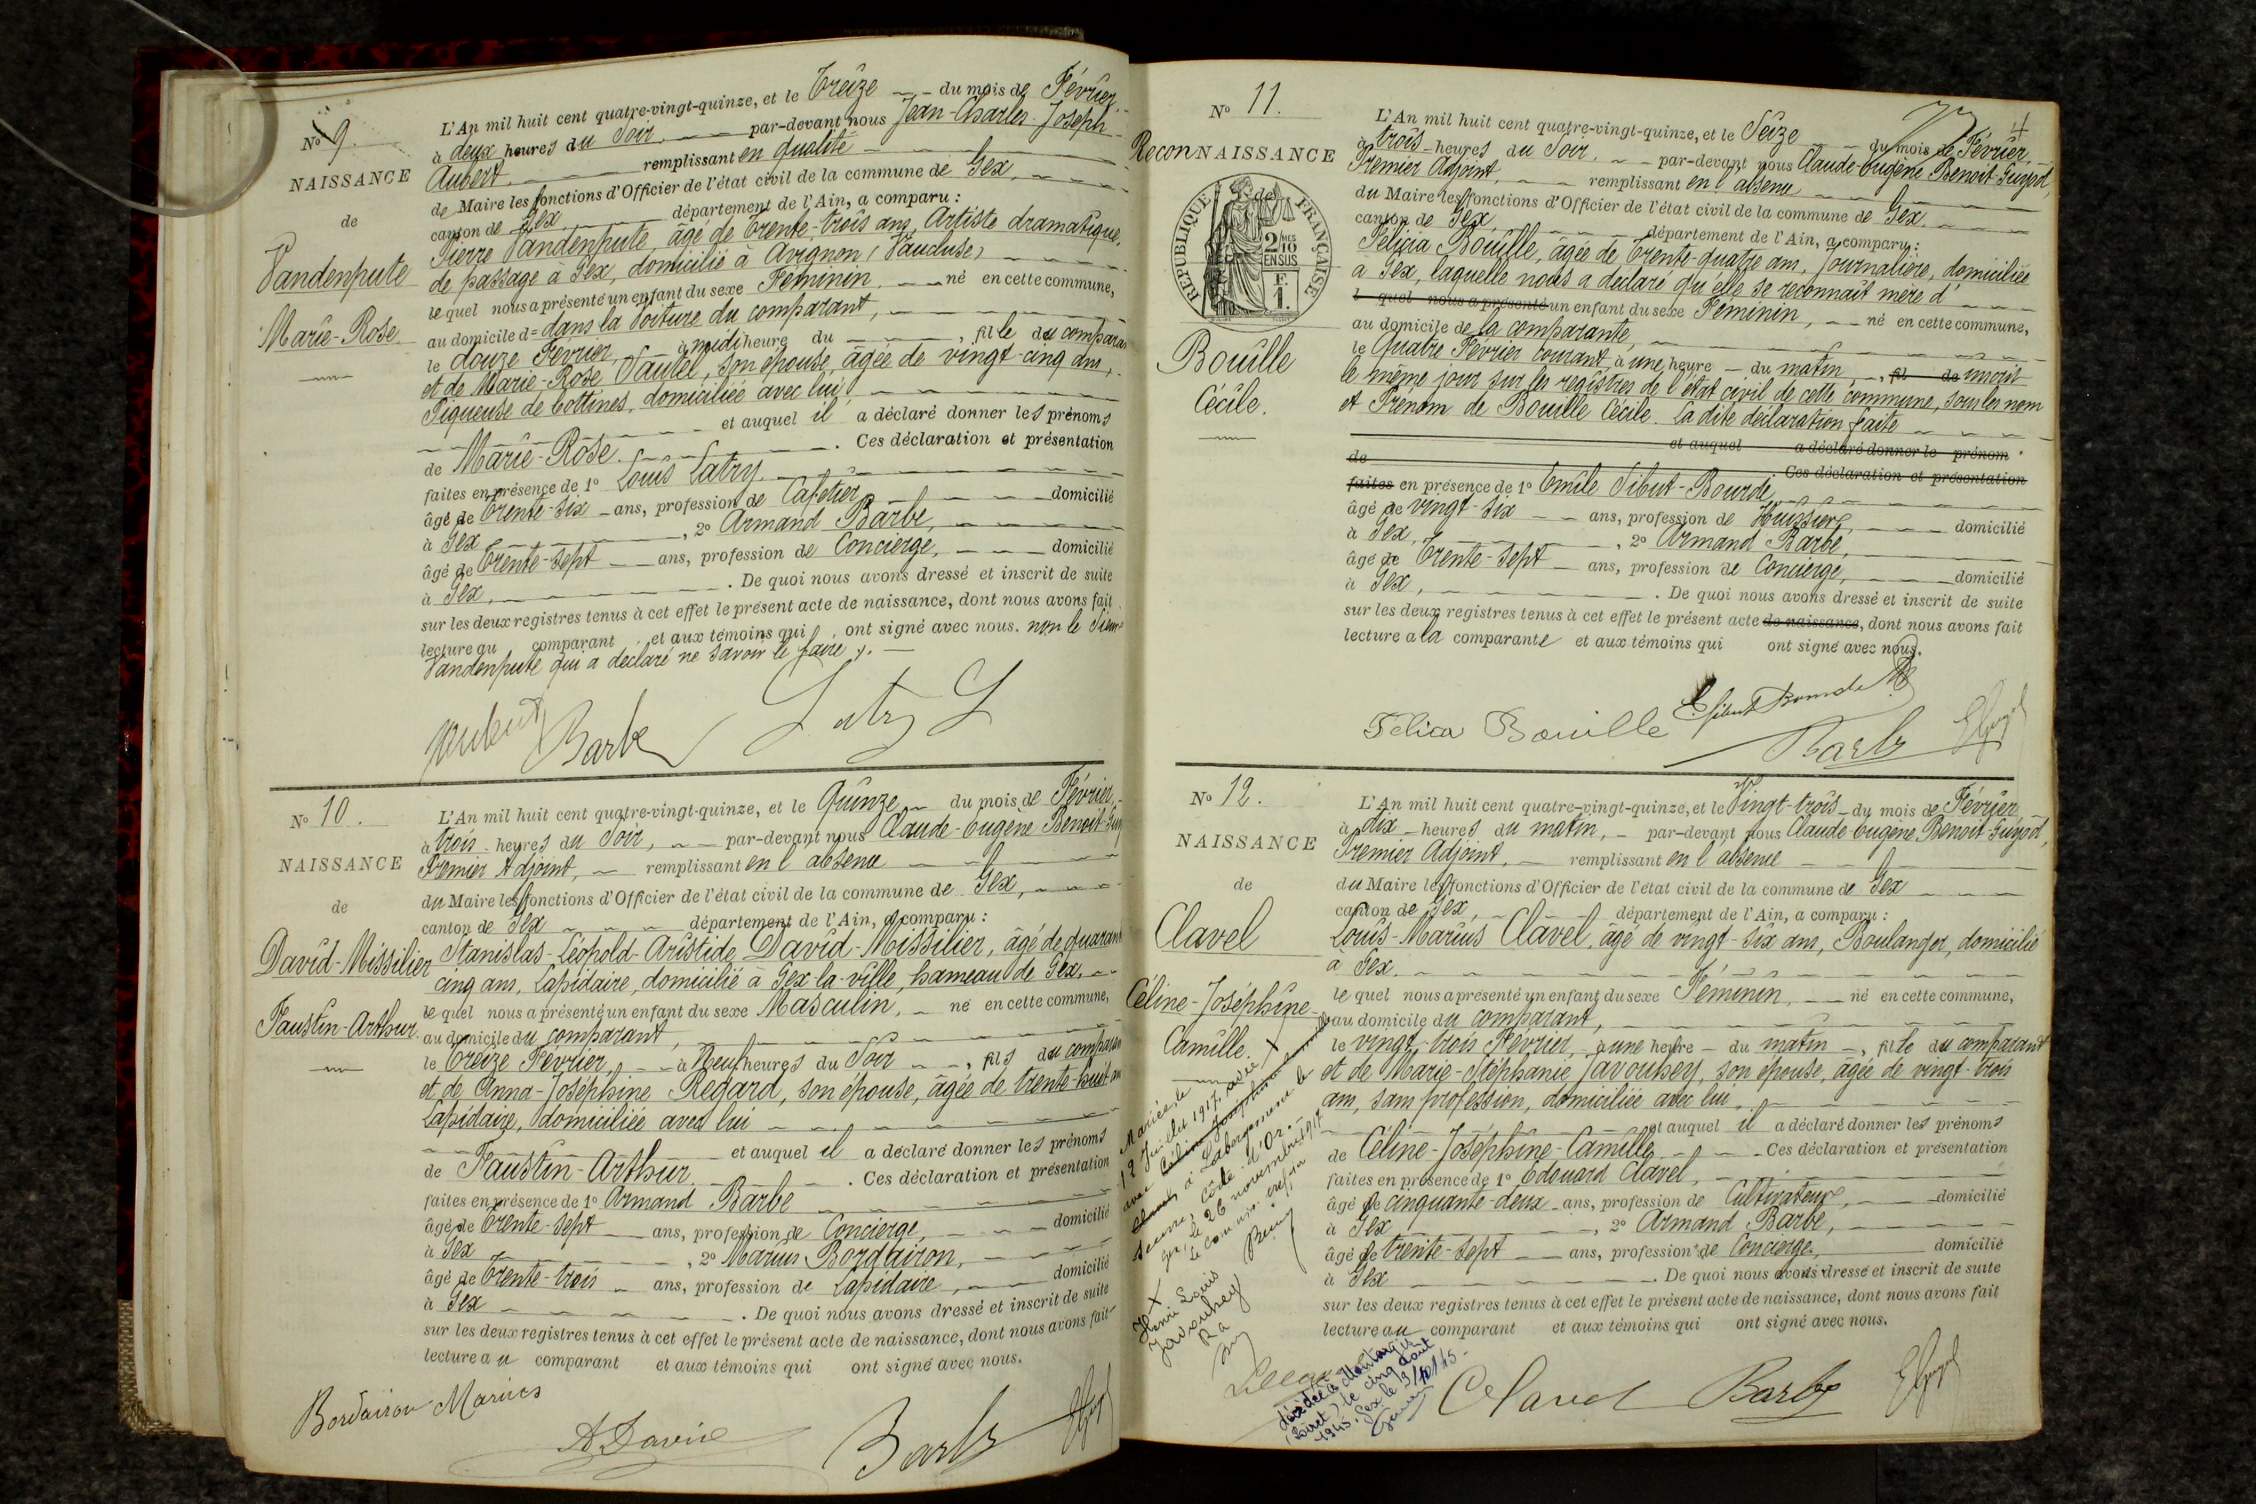 No 9.
NAISSANCE
de
Vandenpute
Marie-Rose
L'An mil huit cent quatre-vingt-quinze, et le Treize du mois de Février,
à deux heures du Soir par-devant nous Jean-Charles-Joseph
Aubert, remplissant en qualité
de Maire les fonctions d'Officier de l'état civil de la commune de Gex,
canton de Gex département de l'Ain, a comparu :
Pierre Vandenpute, âgé de Trente-trois ans, Artiste dramatique,
de passage à Gex, domicilié à Avignon (Vaucluse)
le quel nous a présenté un enfant du sexe Féminin, né en cette commune,
au domicile d= dans la Voiture du comparant,
le douze Février, à midi heure du , fille du comparant
et de Marie-Rose Vautel, son épouse, âgée de vingt-cinq ans,
Piqueuse de bottines, domiciliée avec lui,
et auquel il a déclaré donner les prénoms
de Marie-Rose . Ces déclaration et présentation
faites en présence de 1o Louis Latry
âgé de Trente-six ans, profession de Cafetier, domicilié
à Gex , 2o Armand Barbe,
âgé de Trente-sept ans, profession de Concierge, domicilié
à Gex, . De quoi nous avons dressé et inscrit de suite
sur les deux registres tenus à cet effet le présent acte de naissance, dont nous avons fait
lecture au comparant et aux témoins qui ont signé avec nous. non le Sieur
Vandenpute qui a déclaré ne savoir le faire
Aubert Barbe Latry L
No 10.
NAISSANCE
de
David-Missilier
Faustin-Arthur
L'An mil huit cent quatre-vingt-quinze, et le Quinze du mois de Février,
à trois heures du Soir, par-devant nous Claude-Eugène Benoit-Guyod
Premier Adjoint, remplissant en l'absence
du Maire les fonctions d'Officier de l'état civil de la commune de Gex,
canton de Gex département de l'Ain, a comparu :
Stanislas-Léopold-Aristide David-Missilier, âgé de quarante
cinq ans, Lapidaire, domicilié à Gex-la-ville, hameau de Gex,
le quel nous a présenté un enfant du sexe Masculin, né en cette commune,
au domicile du comparant,
le Treize Février, à Neuf heures du Soir , fils du comparant
et de Anna-Joséphine Regard, son épouse, âgée de trente-huit ans
Lapidaire, domiciliée avec lui
et auquel il a déclaré donner les prénoms
de Faustin-Arthur . Ces déclaration et présentation
faites en présence de 1o Armand Barbe
âgé de Trente-sept ans, profession de Concierge, domicilié
à Gex , 2o Marius Bordairon,
âgé de Trente-trois ans, profession de Lapidaire, domicilié
à Gex . De quoi nous avons dressé et inscrit de suite
sur les deux registres tenus à cet effet le présent acte de naissance, dont nous avons fait
lecture au comparant et aux témoins qui ont signé avec nous.
Bordairon Marius
A. David Barbe
No 11.
ReconNAISSANCE
de
REPUBLIQUE FRANÇAISE
2/10 MES
EN SUS
E.
1.
Bouille
Cécile.
4
L'An mil huit cent quatre-vingt-quinze, et le Seize du mois de Février,
à trois heures du Soir, par-devant nous Claude-Eugène Benoit-Guyod,
Premier Adjoint, remplissant en l'absence
du Maire les fonctions d'Officier de l'état civil de la commune de Gex
canton de Gex, département de l'Ain, a comparu :
Félicia Bouille, âgée de Trente-quatre ans, Journalière, domiciliée
à Gex, laquelle nous a déclaré qu'elle se reconnaît mère d'
l quel nous a présenté un enfant du sexe Féminin, né en cette commune,
au domicile de la comparante,
le Quatre Février courant, à une heure du matin, fil de inscrit
le même jour sur les registres de l'état civil de cette commune, sous les nom
et Prénom de Bouille Cécile. La dite déclaration faite
et auquel a déclaré donner le prénom
de Ces déclaration et présentation
faites en présence de 1o Emile Sibut-Bourde
âgé de vingt-six ans, profession de Huissier, domicilié
à Gex, , 2o Armand Barbe,
âgé de Trente-sept ans, profession de Concierge, domicilié
à Gex, . De quoi nous avons dressé et inscrit de suite
sur les deux registres tenus à cet effet le présent acte de naissance, dont nous avons fait
lecture a la comparante et aux témoins qui ont signé avec nous.
Félica Bouille E. Sibut Bourde
Barbe
No 12.
NAISSANCE
de
Clavel
Céline-Joséphine
Camille. X
L'An mil huit cent quatre-vingt-quinze, et le Vingt-trois du mois de Février
à dix heures du matin, par-devant nous Claude-Eugène Benoit-Guyod,
Premier Adjoint, remplissant en l'absence
du Maire les fonctions d'Officier de l'état civil de la commune de Gex
canton de Gex, département de l'Ain, a comparu :
Louis-Marius Clavel, âgé de vingt-six ans, Boulanger, domicilié
à Gex.
le quel nous a présenté un enfant du sexe Féminin, né en cette commune,
au domicile du comparant,
le vingt-trois Février, à une heure du matin, fille du comparant
et de Marie-Stéphanie Javouhey, son épouse, âgée de vingt-trois
ans, sans profession, domiciliée avec lui,
et auquel il a déclaré donner les prénoms
de Céline-Joséphine-Camille . Ces déclaration et présentation
faites en présence de 1o Edouard Clavel,
âgé de cinquante-deux ans, profession de Cultivateur, domicilié
à Gex , 2o Armand Barbe,
âgé de trente-sept ans, profession de Concierge, domicilié
à Gex . De quoi nous avons dressé et inscrit de suite
sur les deux registres tenus à cet effet le présent acte de naissance, dont nous avons fait
lecture au comparant et aux témoins qui ont signé avec nous.
Clavel Barbe
Mariée le
12 Juillet 1917
avec Céline Joséphine
Clavel, à Labergement le
Seurre, Côte-d'Or.
Gex, le 26 novembre 1917
Le commis greffier
X
Henri Louis
Javouhey
décédée à Montargis
(Loiret) le cinq août
1945. Gex le 3/10/45.